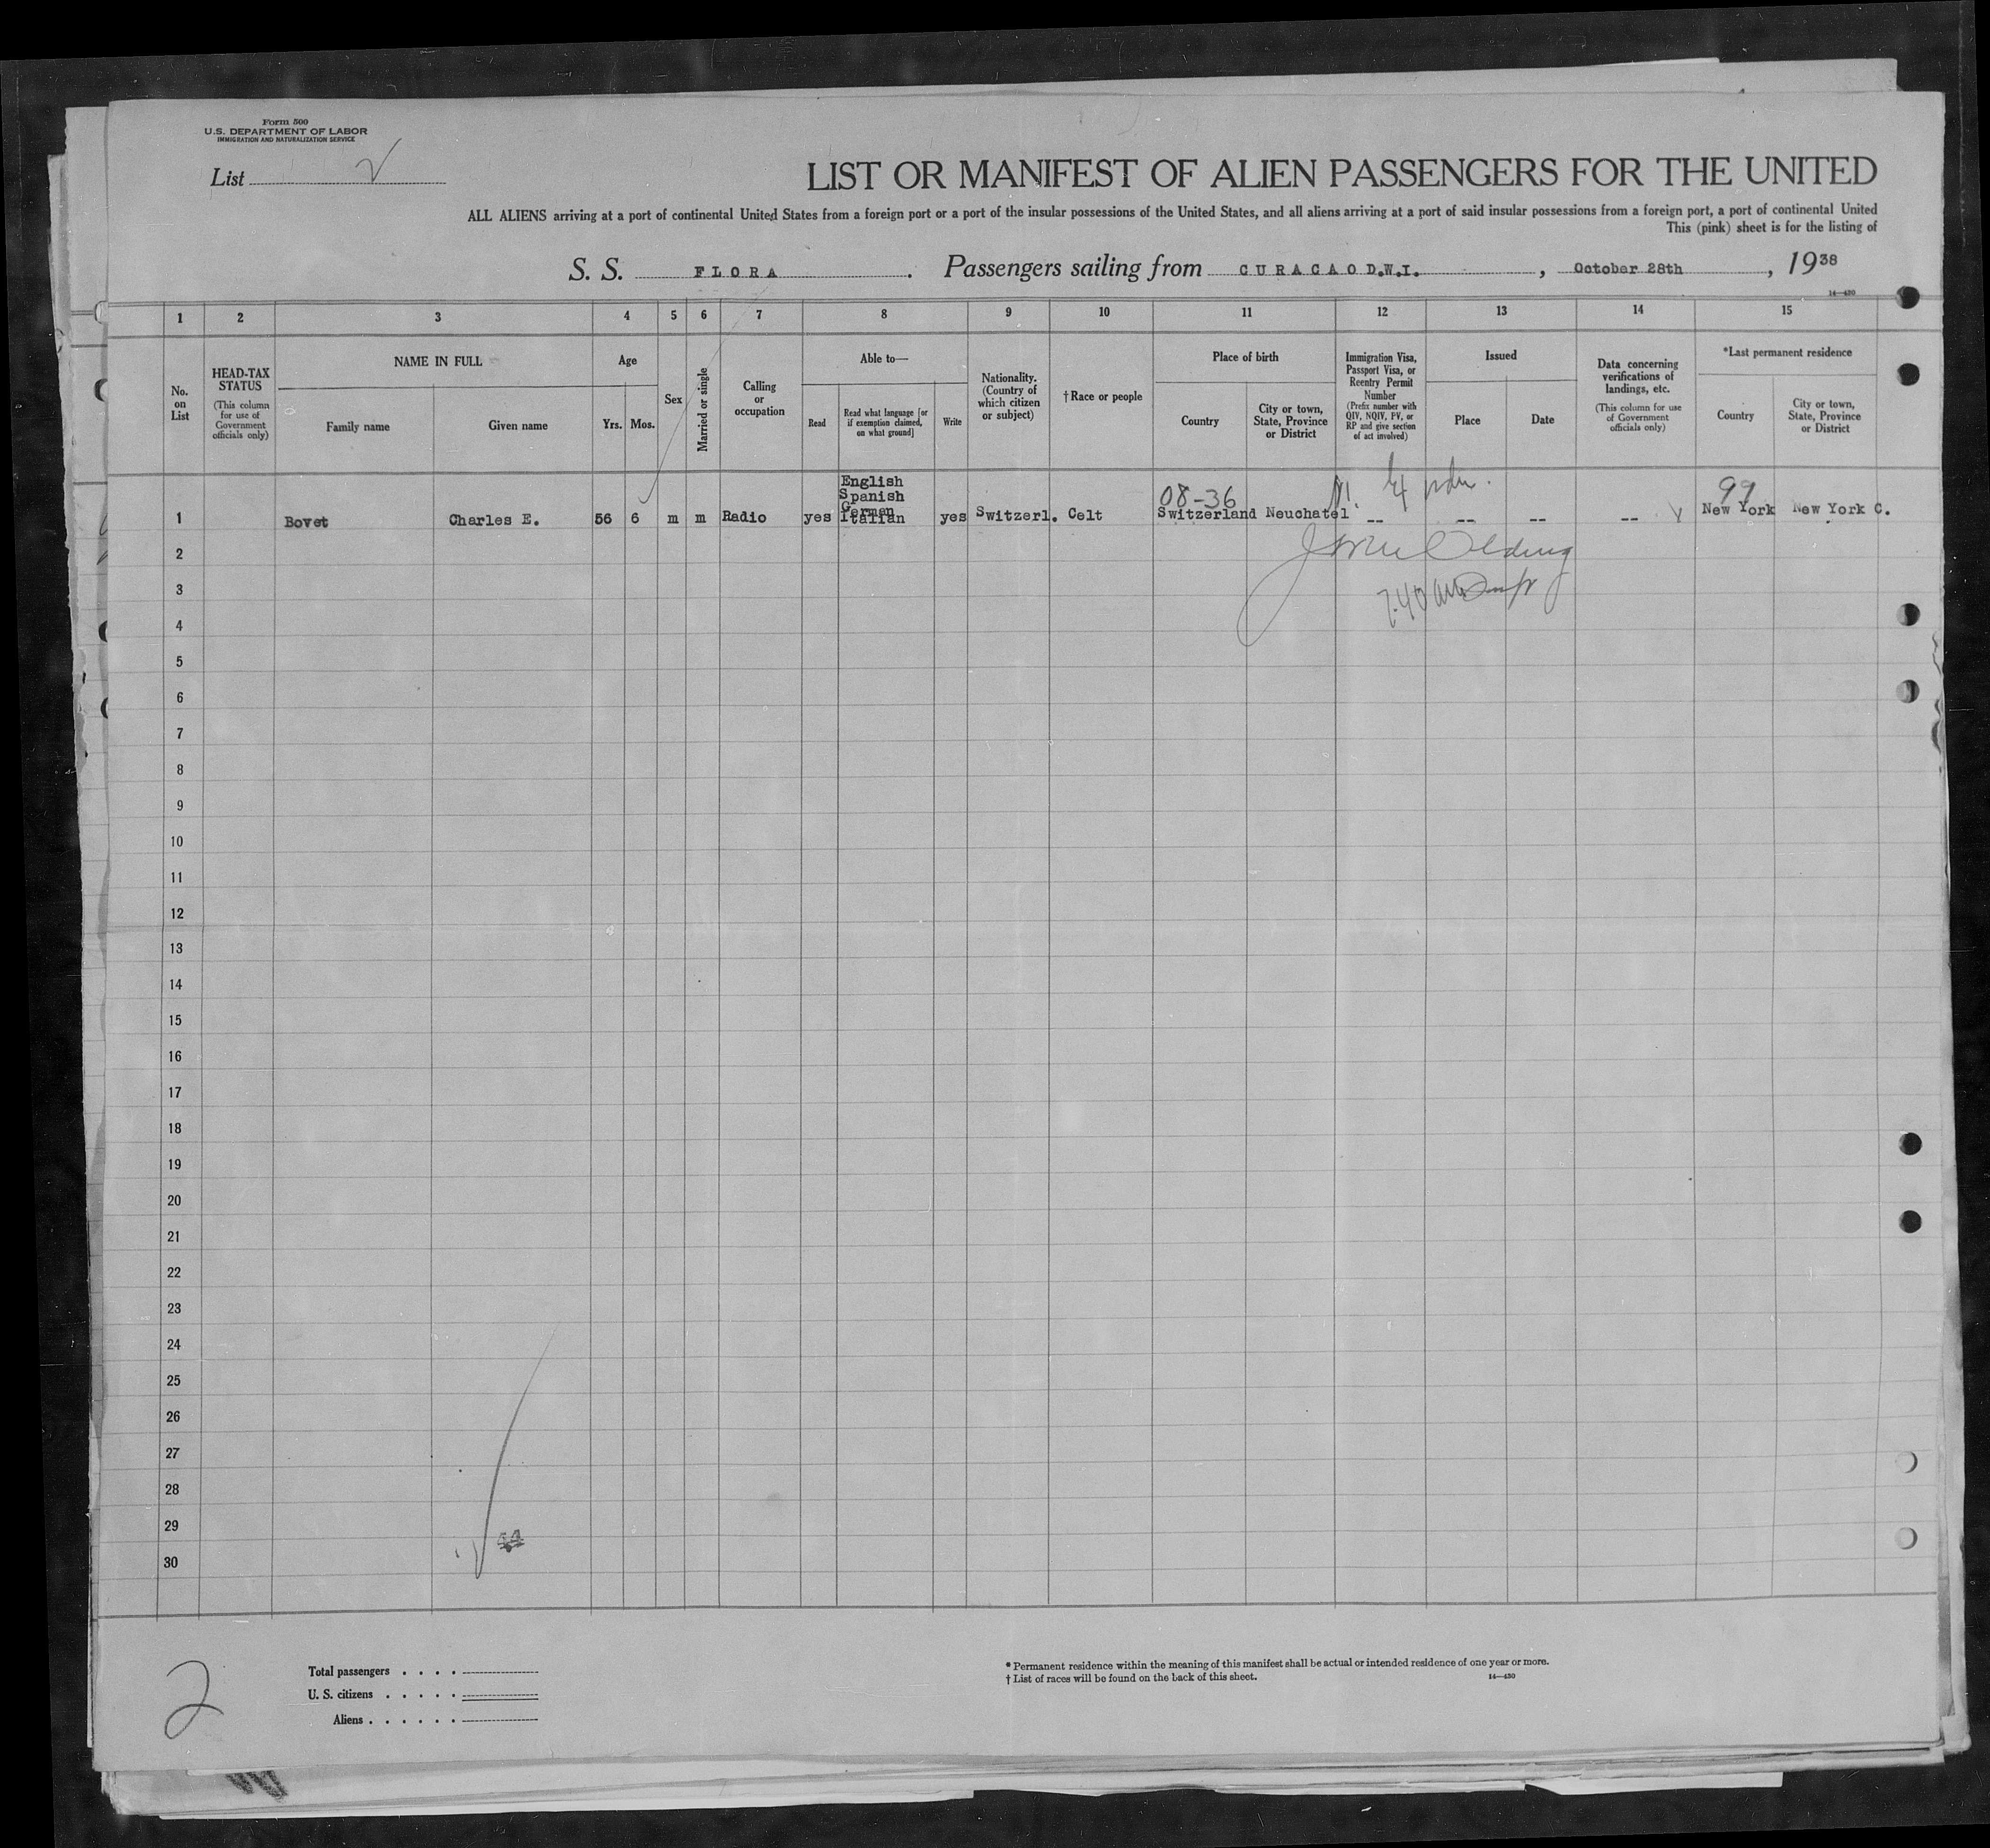 Form 500
U.S. DEPARTMENT OF LABOR
IMMIGRATION AND NATURALIZATION SERVICE
List 2
LIST OR MANIFEST OF ALIEN PASSENGERS FOR THE UNITED
ALL ALIENS arriving at a port of continental United States from a foreign port or a port of the insular possessions of the United States, and all aliens arriving at a port of said insular possessions from a foreign port, a port of continental United
This (pink) sheet is for the listing of
S. S. FLORA. Passengers sailing from CURACAO D.W.I., October 28th, 1938
14—430
1 2 3 4 5 6 7 8 9 10 11 12 13 14 15
No. on List
HEAD-TAX STATUS (This column for use of Government officials only)
NAME IN FULL
Family name
Given name
Age
Yrs. Mos.
Sex
Married or single
Calling or occupation
Able to—
Read
Read what language [or if exemption claimed, on what ground]
Write
Nationality. (Country of which citizen or subject)
†Race or people
Place of birth
Country
City or town, State, Province or District
Immigration Visa, Passport Visa, or Reentry Permit Number (Prefix number with QIV, NQIV, PV, or RP and give section of act involved)
Issued
Place
Date
Data concerning verifications of landings, etc. (This column for use of Government officials only)
*Last permanent residence
Country
City or town, State, Province or District
English
Spanish
German
08-36
99
1 Bovet Charles E. 56 6 m m Radio yes Italian yes Switzerl. Celt Switzerland Neuchatel -- -- -- -- New York New York C.
2
3
7.40 am
4
5
6
7
8
9
10
11
12
13
14
15
16
17
18
19
20
21
22
23
24
25
26
27
28
29
30
2
Total passengers . . . .
U. S. citizens . . . . .
Aliens . . . . . .
* Permanent residence within the meaning of this manifest shall be actual or intended residence of one year or more.
† List of races will be found on the back of this sheet.
14—430